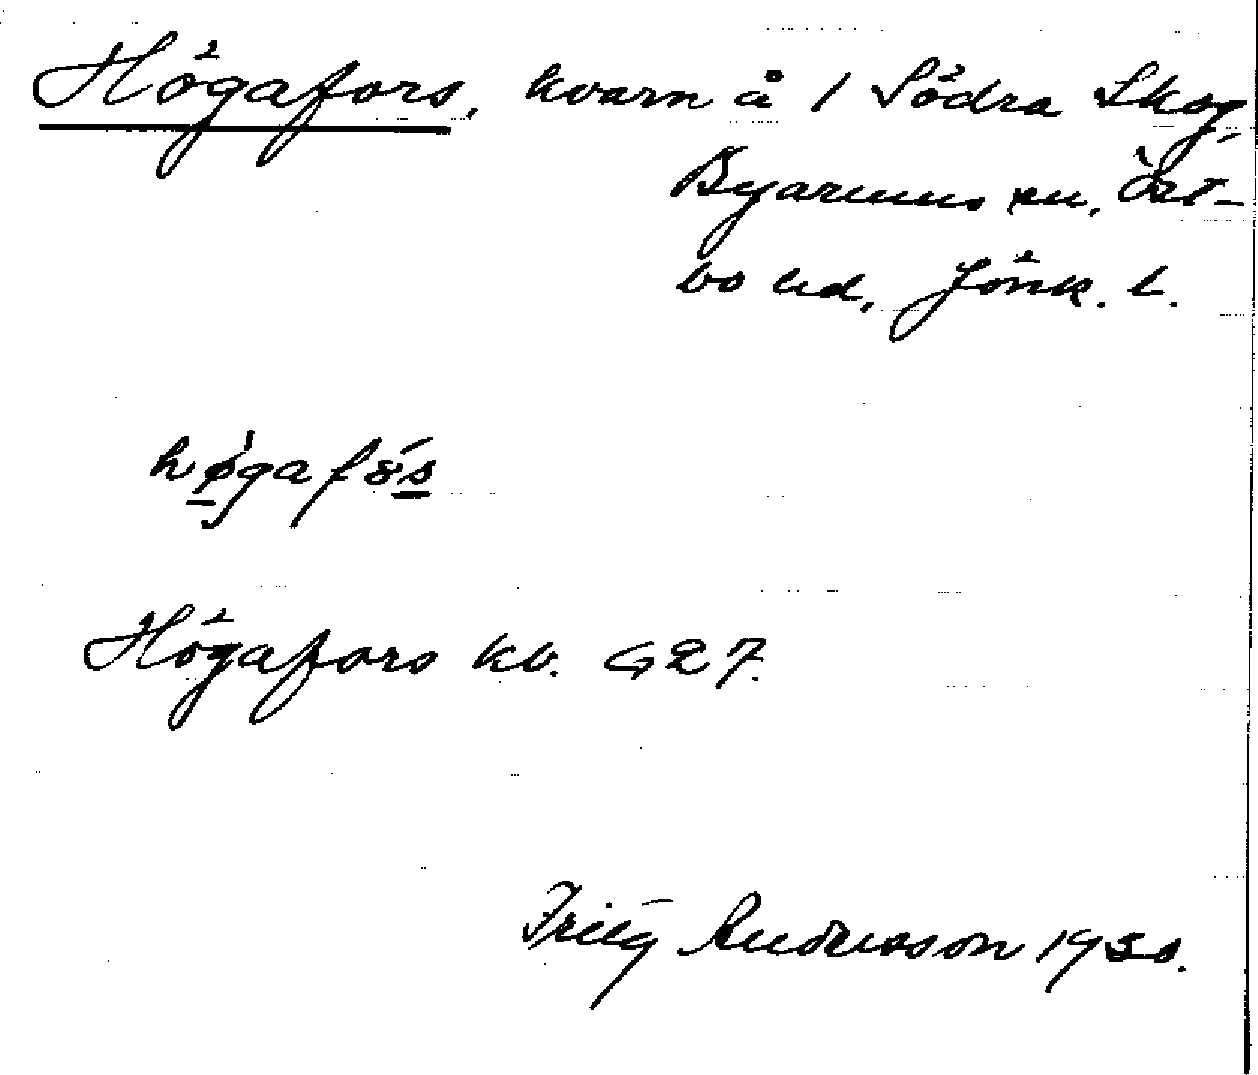 Högafors, kvarn å 1 Södra Skog,
Byarums sn, Öst-
bo hd, Jönk. l.
høgafo̊s
Högafors kv. G 27.
Andersson 1930.